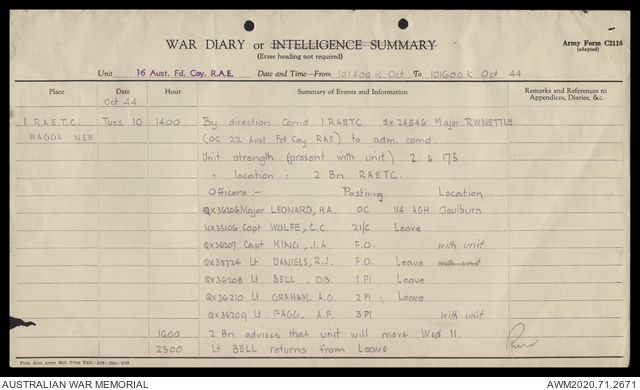 WAR DIARY or INTELLIGENCE SUMMARY
(Erase heading not required)
Army Form C2118
(adapted)
Unit 16 Aust. Fd. Coy. R.A.E. Date and Time—From 101400K Oct To 101600K Oct 44
Place Date Hour Summary of Events and Information Remarks and References to Appendices, Diaries, &c.
Oct 44
1 R.A.E.T.C. Tues 10 1400 By direction Comd 1 RAETC SX24346 Major R.W.NETTLE
WAGGA NSW (OC 22 Aust Fd Coy RAE) to adm. comd.
Unit strength (present with unit) 2 & 175
" location : 2 Bn RAETC.
Officers :- Posting Location
QX36206 Major LEONARD, H.A. OC 114 AGH Goulburn
NX35106 Capt WOLFE, C.C. 2I/C Leave
QX36207 Capt KING, J.A. F.O. with unit
QX38724 Lt DANIELS, R.J. F.O. Leave with unit
QX36208 Lt BELL, D.B. 1 Pl Leave
QX36210 Lt GRAHAM, A.G. 2 Pl Leave
QX36209 Lt FAGG, A.F. 3 Pl with unit
1600 2 Bn advises that unit will move Wed 11.
2300 Lt BELL returns from Leave
AUSTRALIAN WAR MEMORIAL
AWM2020.71.2671